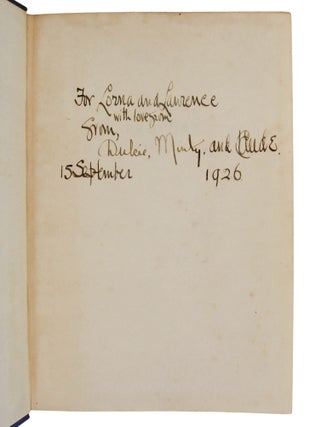 For Lorna and Lawrence
with love from
From,
Dulcie, Minty. and Claude.
15 September 1926